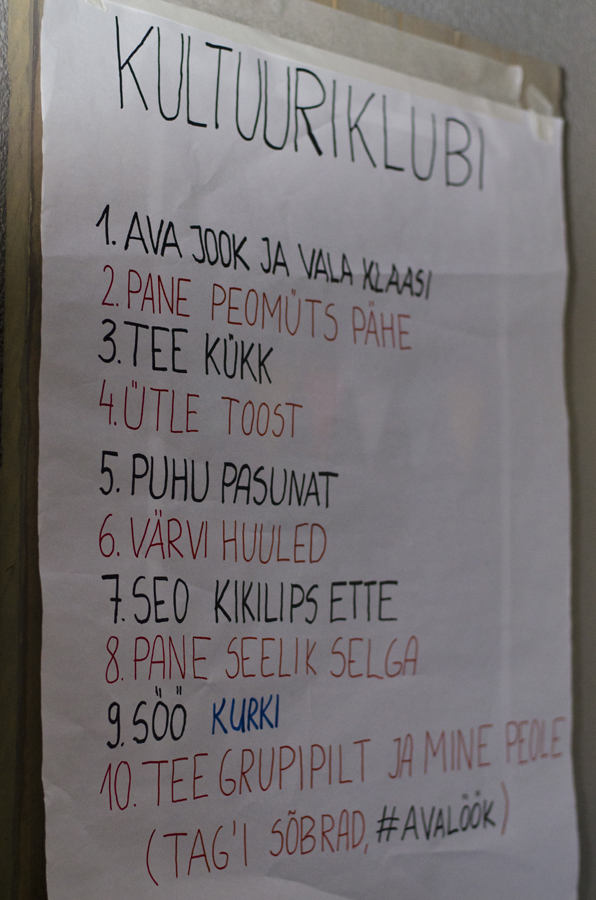 KULTUURIKLUBI
1. AVA JOOK JA VALA KLAASI
2. PANE PEOMÜTS PÄHE
3. TEE KÜKK
4. ÜTLE TOOST
5. PUHU PASUNAT
6. VÄRVI HUULED
7. SEO KIKILIPS ETTE
8. PANE SEELIK SELGA
9. SÖÖ KURKI
10. TEE GRUPIPILT JA MINE PEOLE
(TAG'I SÕBRAD, #AVALÖÖK)